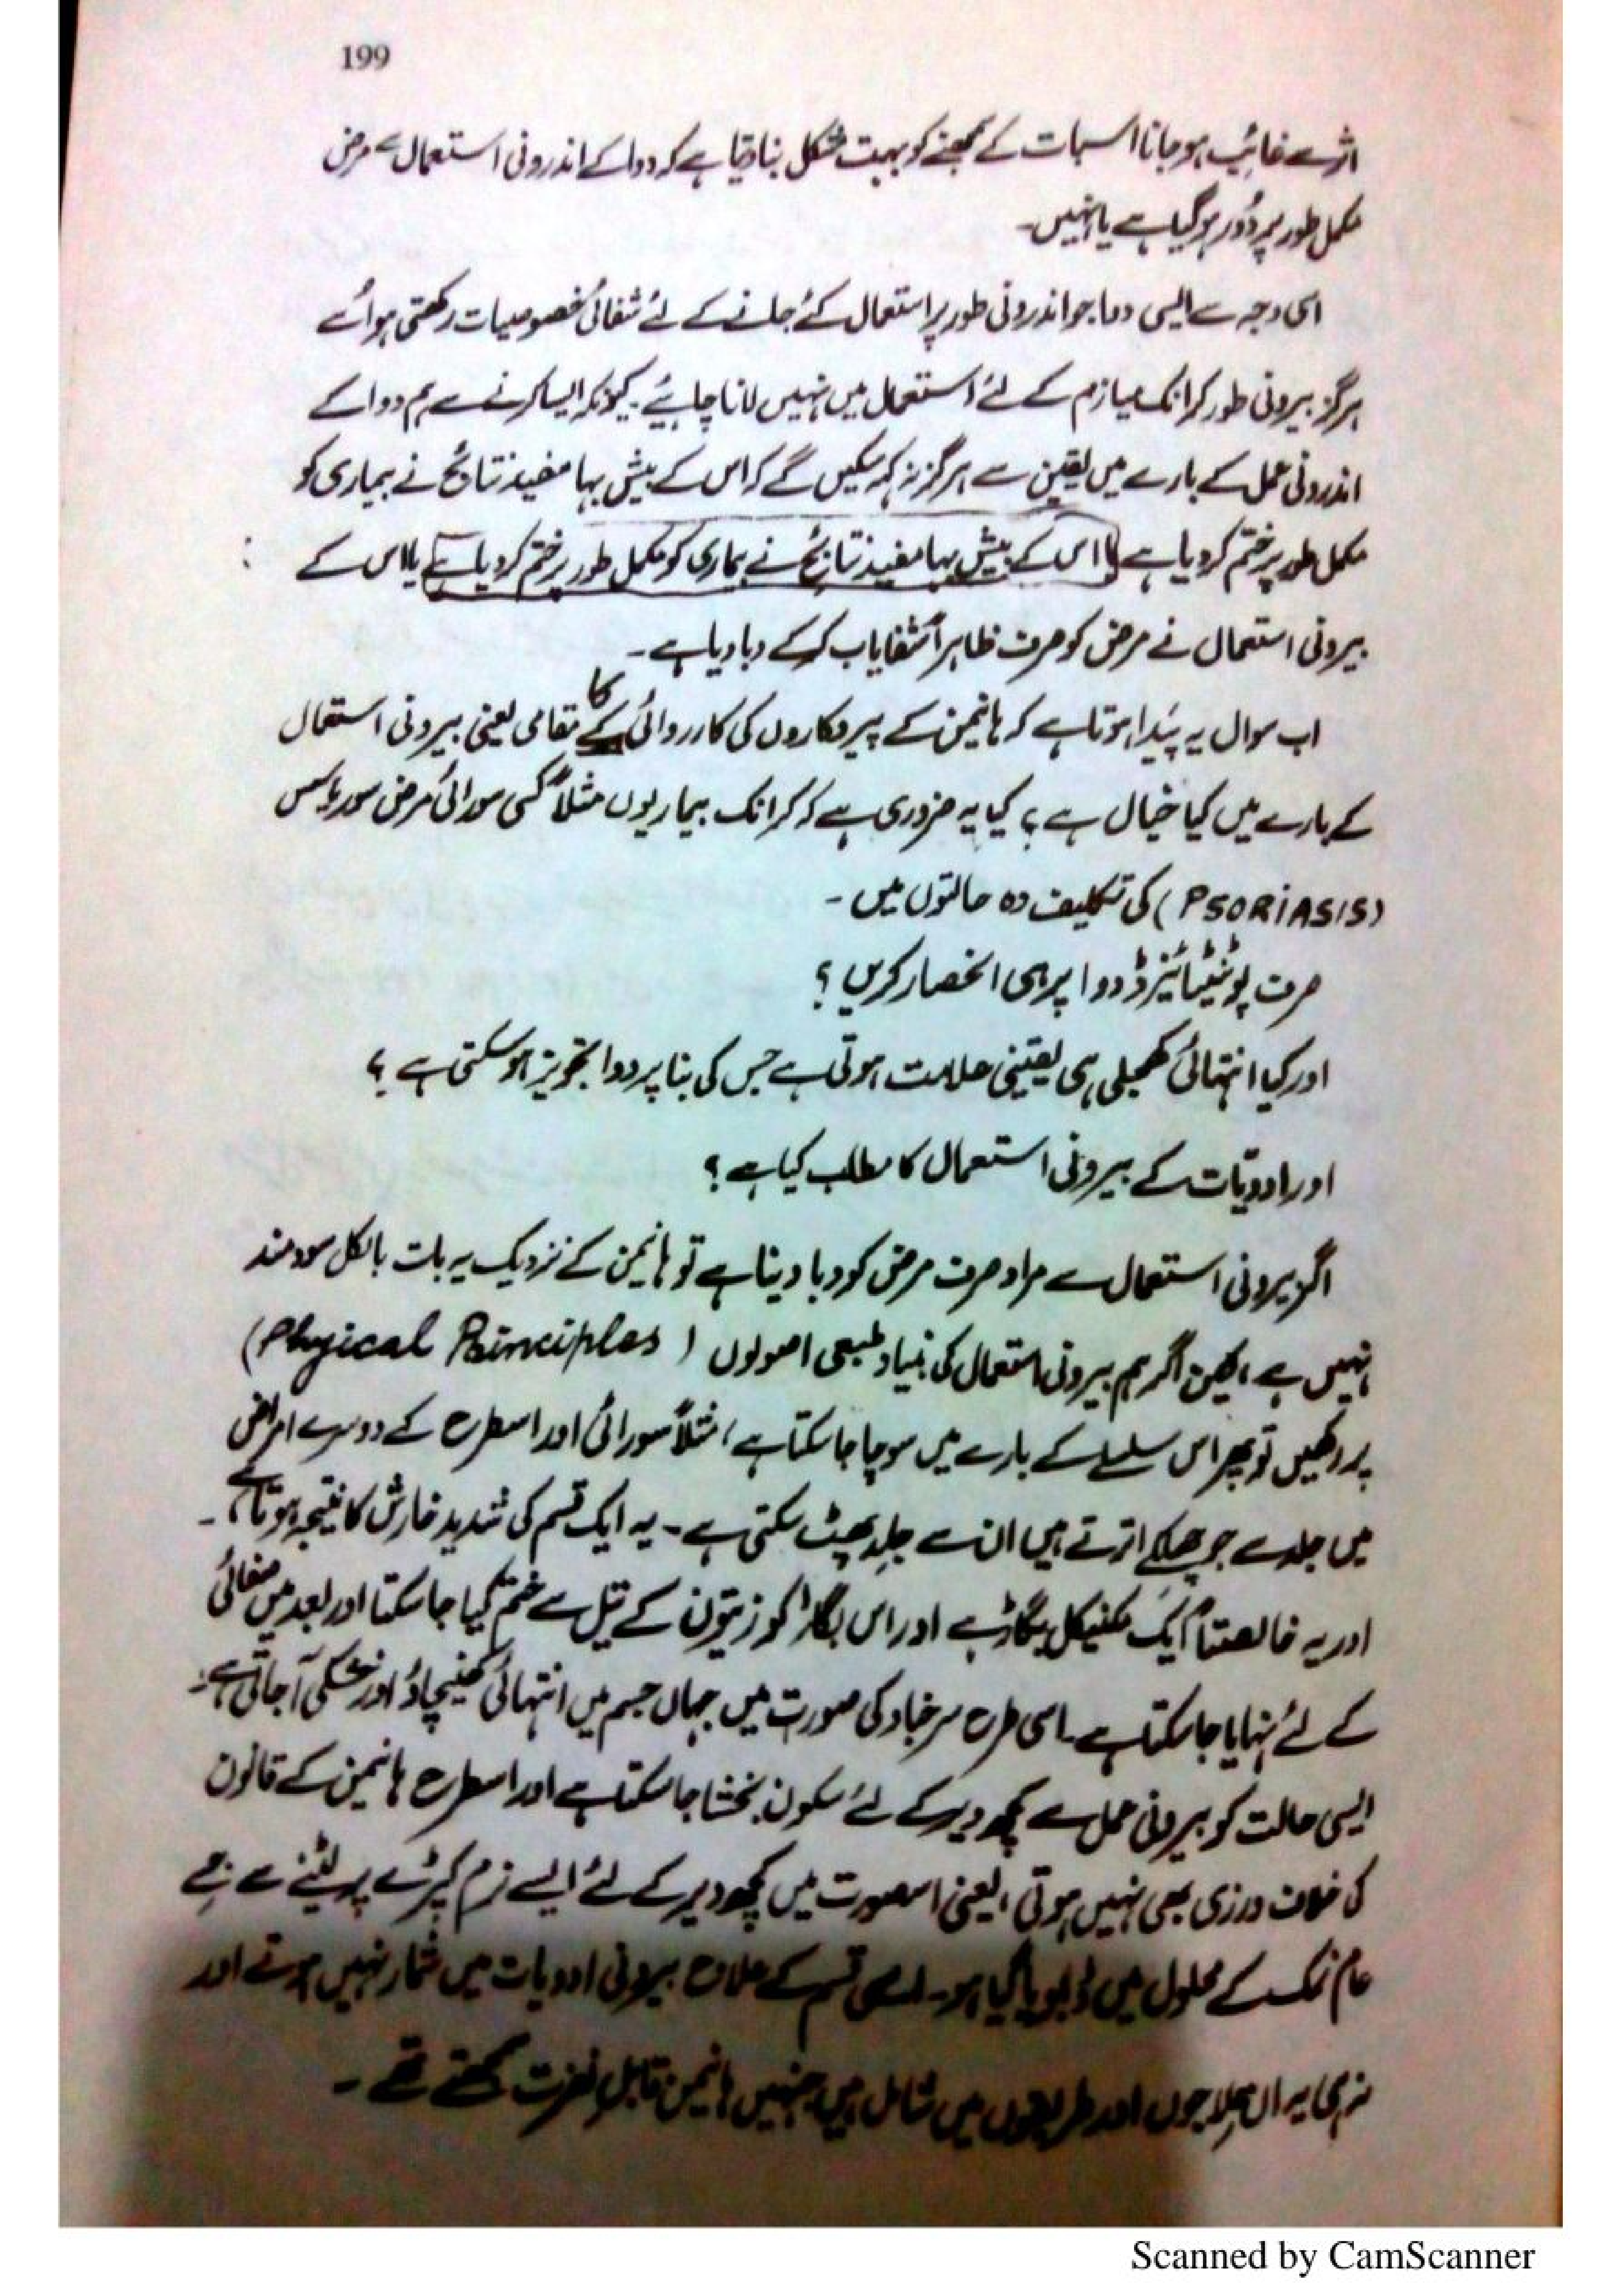 199
اثر سے غائب ہو جانا اس بات کے سمجھنے کو بہت مشکل بنا دیتا ہے کہ دوا کے اندرونی استعمال سے مرض
مکمل طور پر دُور ہو گیا ہے یا نہیں۔
اسی وجہ سے ایسی دوا جو اندرونی طور پر استعمال کئے جانے کے لئے شفائی خصوصیات رکھتی ہو اُسے
ہرگز بیرونی طور کرانک میازم کے لئے استعمال میں نہیں لانا چاہیئے۔ کیونکہ ایسا کرنے سے ہم دوا کے
اندرونی عمل کے بارے میں یقین سے ہرگز نہ کہہ سکیں گے کہ اس کے بیش بہا مفید نتائج نے بیماری کو
مکمل طور پر ختم کر دیا ہے یا اس کے بیش بہا مفید نتائج نے بیماری کو مکمل طور پر ختم کر دیا ہے یا اس کے
بیرونی استعمال نے مرض کو صرف ظاہراً شفایاب کر کے دبا دیا ہے۔
اب سوال یہ پیدا ہوتا ہے کہ ہانیمن کے پیروکاروں کی کارروائی کے کا مقامی یعنی بیرونی استعمال
کے بارے میں کیا خیال ہے؟ کیا یہ ضروری ہے کہ کرانک بیماریوں مثلاً کسی سورائی مرض سوریاسس
(PSORiASIS) کی تکلیف دہ حالتوں میں۔
صرف پوٹینٹائیزڈ دوا پر ہی انحصار کریں؟
اور کیا انتہائی کھجلی ہی یقینی علامت ہوتی ہے جس کی بنا پر دوا تجویز ہو سکتی ہے؟
اور ادویات کے بیرونی استعمال کا مطلب کیا ہے؟
اگر بیرونی استعمال سے مراد صرف مرض کو دبا دینا ہے تو ہانیمن کے نزدیک یہ بات بالکل سودمند
نہیں ہے، لیکن اگر ہم بیرونی استعمال کی بنیاد طبعی اصولوں (Phyical Principles)
پر رکھیں تو پھر اس سلسلے کے بارے میں سوچا جا سکتا ہے، مثلاً سورائی اور اسطرح کے دوسرے امراض
میں جلد سے جو چھلکے اترتے ہیں ان سے جِلد پھٹ سکتی ہے۔ یہ ایک قسم کی شدید خارش کا نتیجہ ہوتا ہے۔
اور یہ خالصتاً ایک مکینیکل بگاڑ ہے اور اس بگاڑ کو زیتون کے تیل سے ختم کیا جا سکتا اور بعد میں صفائی
کے لئے نہایا جا سکتا ہے۔ اسی طرح سرخباد کی صورت میں جہاں جسم میں انتہائی کھینچاؤ اور خشکی آ جاتی ہے۔
ایسی حالت کو بیرونی عمل سے کچھ دیر کے لئے سکون بخشا جا سکتا ہے اور اسطرح ہانیمن کے قانون
کی خلاف ورزی بھی نہیں ہوتی، یعنی اس صورت میں کچھ دیر کے لئے ایسے نرم کپڑے پر لیٹنے سے جسے
عام نمک کے محلول میں ڈبویا گیا ہو۔ اسی قسم کے علاج بیرونی ادویات میں شمار نہیں ہوتے اور
نہ ہی یہ ان علاجوں اور طریقوں میں شامل ہیں جنہیں ہانیمن قابلِ نفرت سمجھتے تھے۔
Scanned by CamScanner